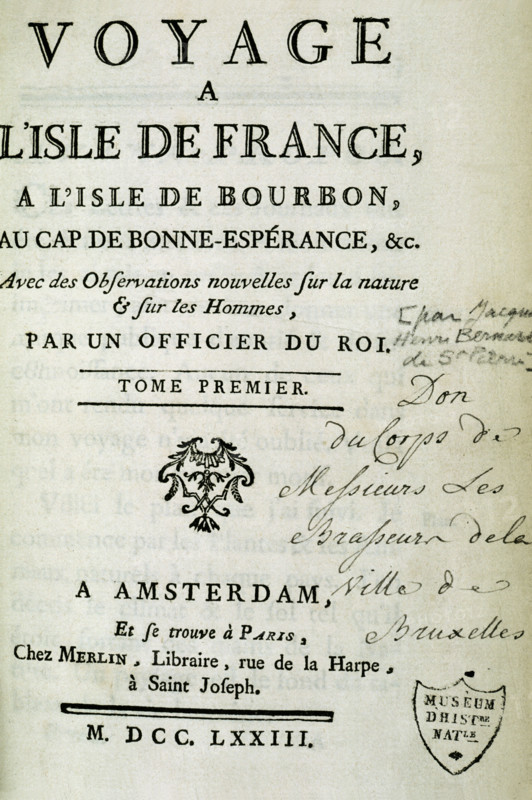 VOYAGE
A
L'ISLE DE FRANCE,
A L'ISLE DE BOURBON,
AU CAP DE BONNE-ESPÉRANCE, &c.
Avec des Obſervations nouvelles ſur la nature
& ſur les Hommes,
PAR UN OFFICIER DU ROI.
[par Jacques
Henri Bernard
de St Pierre]
TOME PREMIER.
Don
du Corps de
Meſsieurs Les
Braſseurs de la
Ville de
Bruxelles
A AMSTERDAM,
Et ſe trouve à PARIS,
Chez MERLIN, Libraire, rue de la Harpe,
à Saint Joſeph.
M. DCC. LXXIII.
MUSÉUM
DHISTRE
NATLE